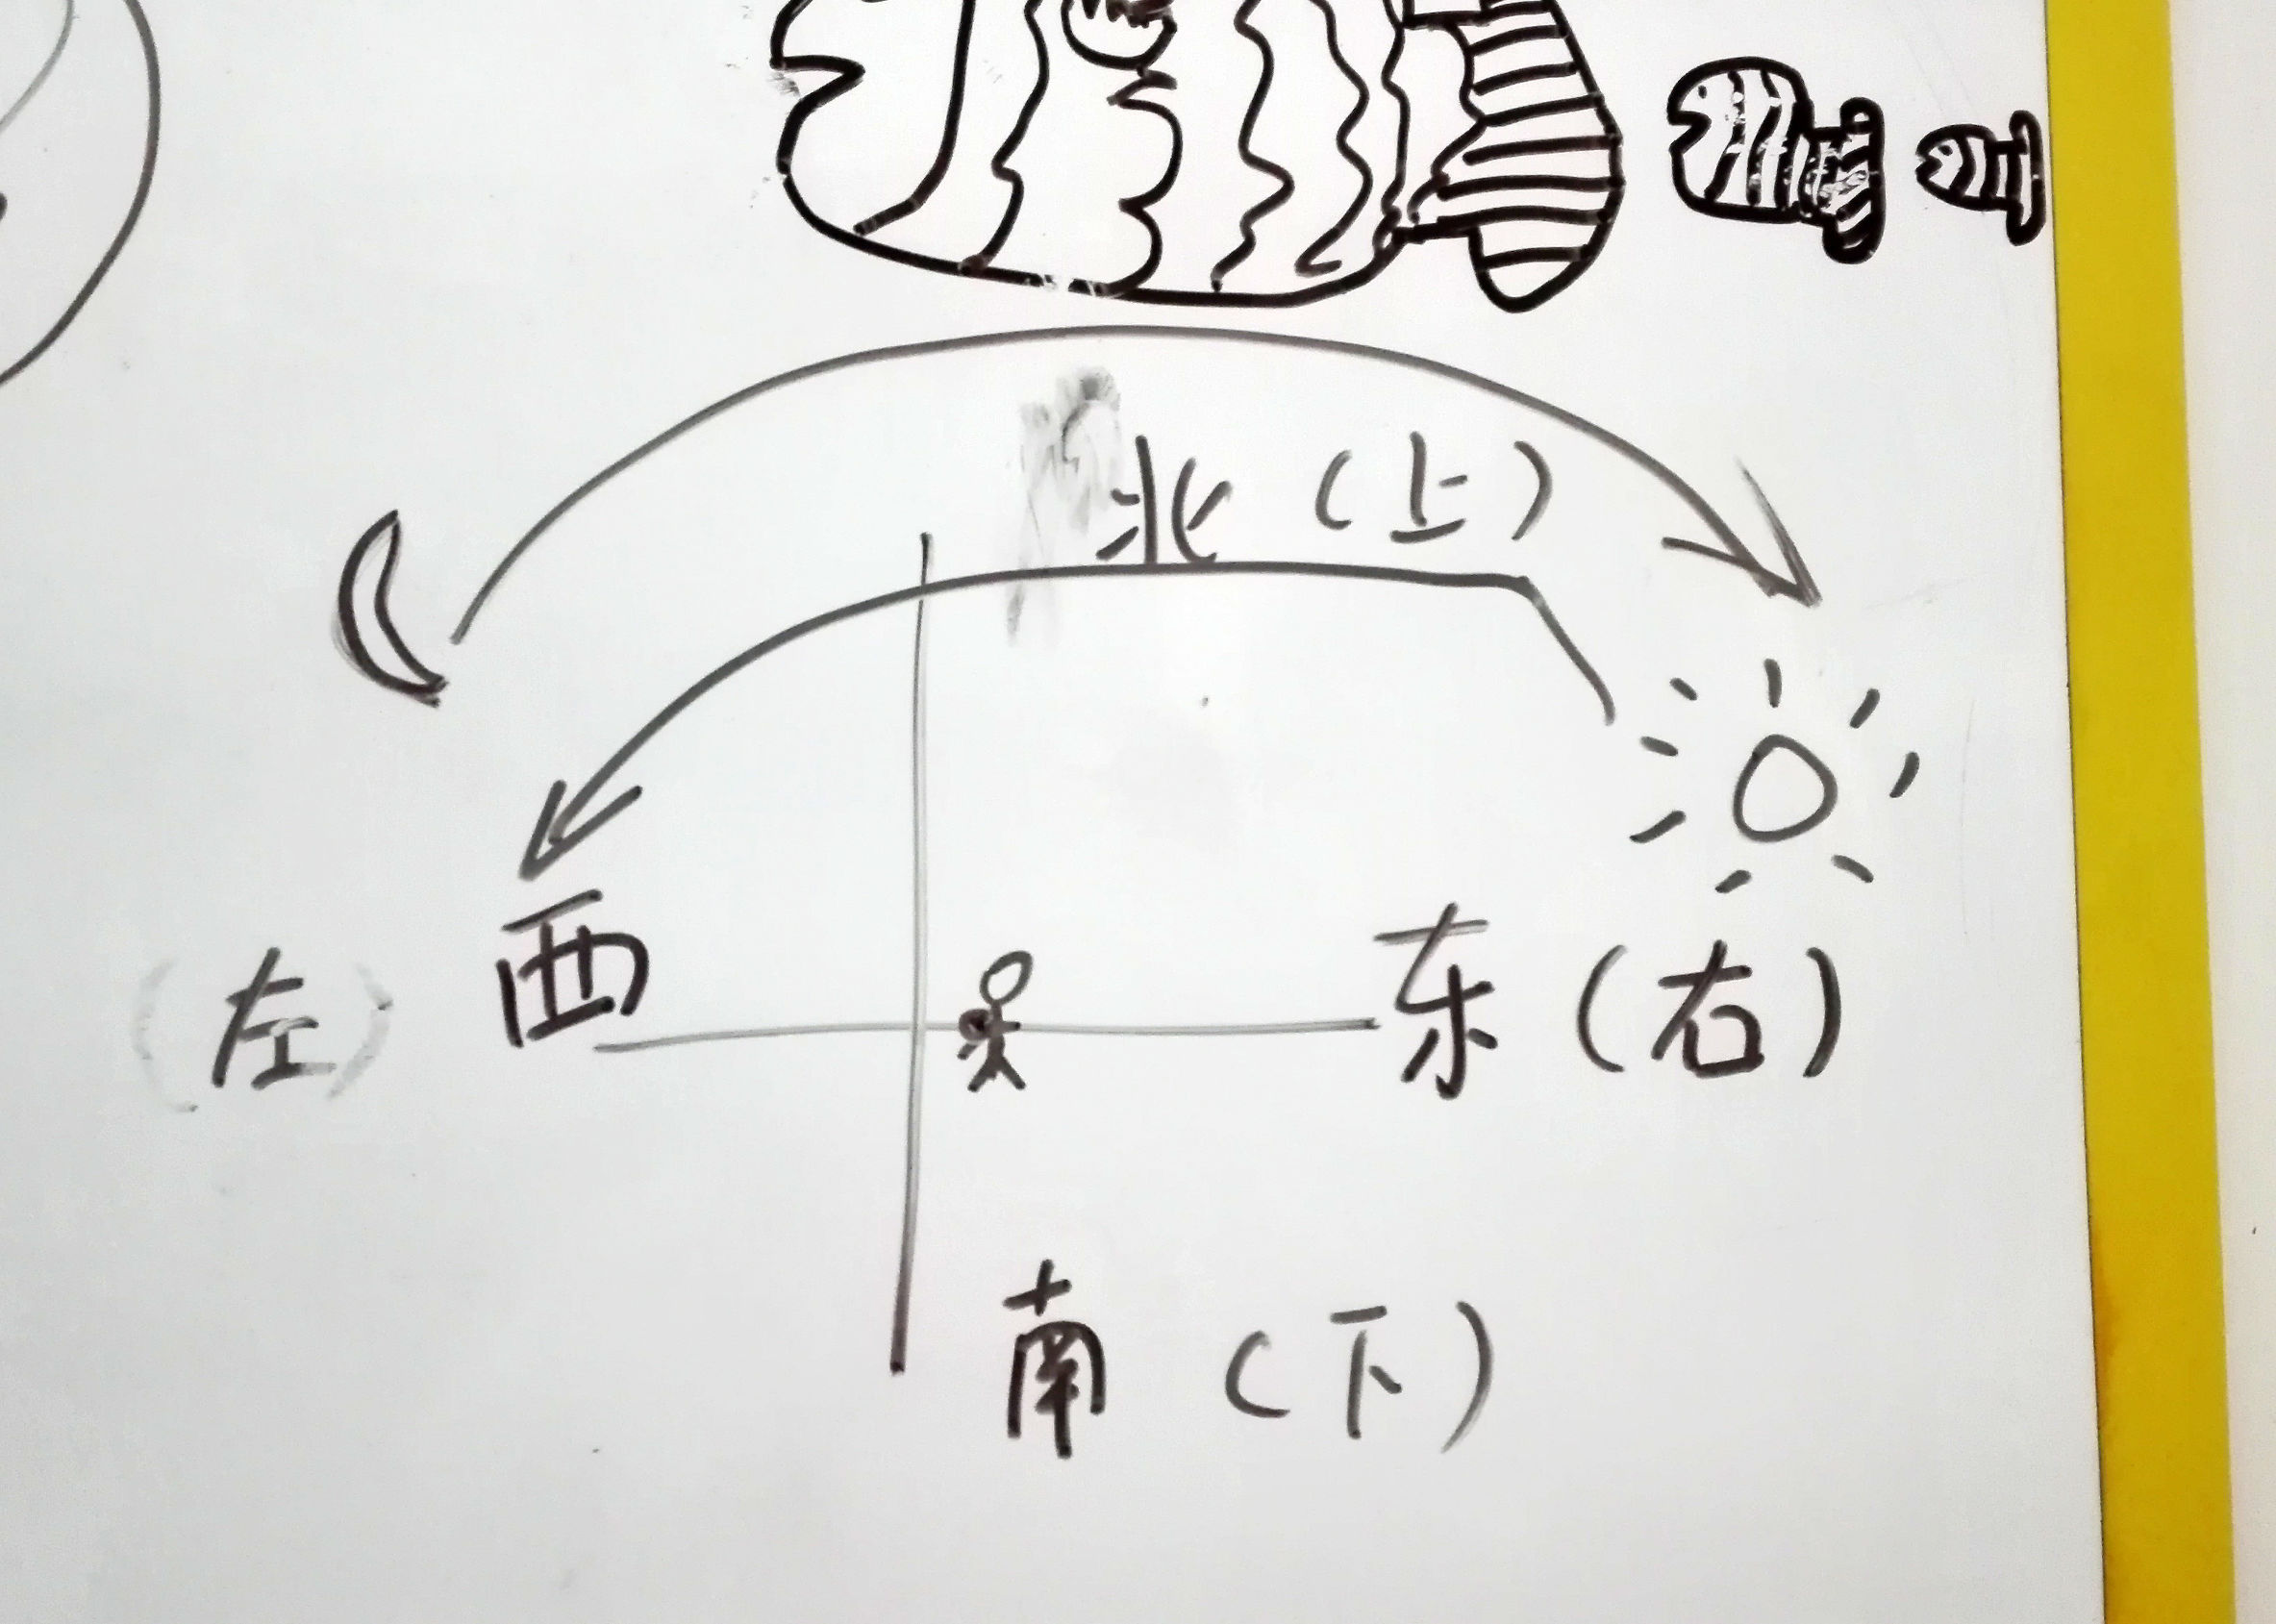 北（上）
（左）西 东（右）
南（下）